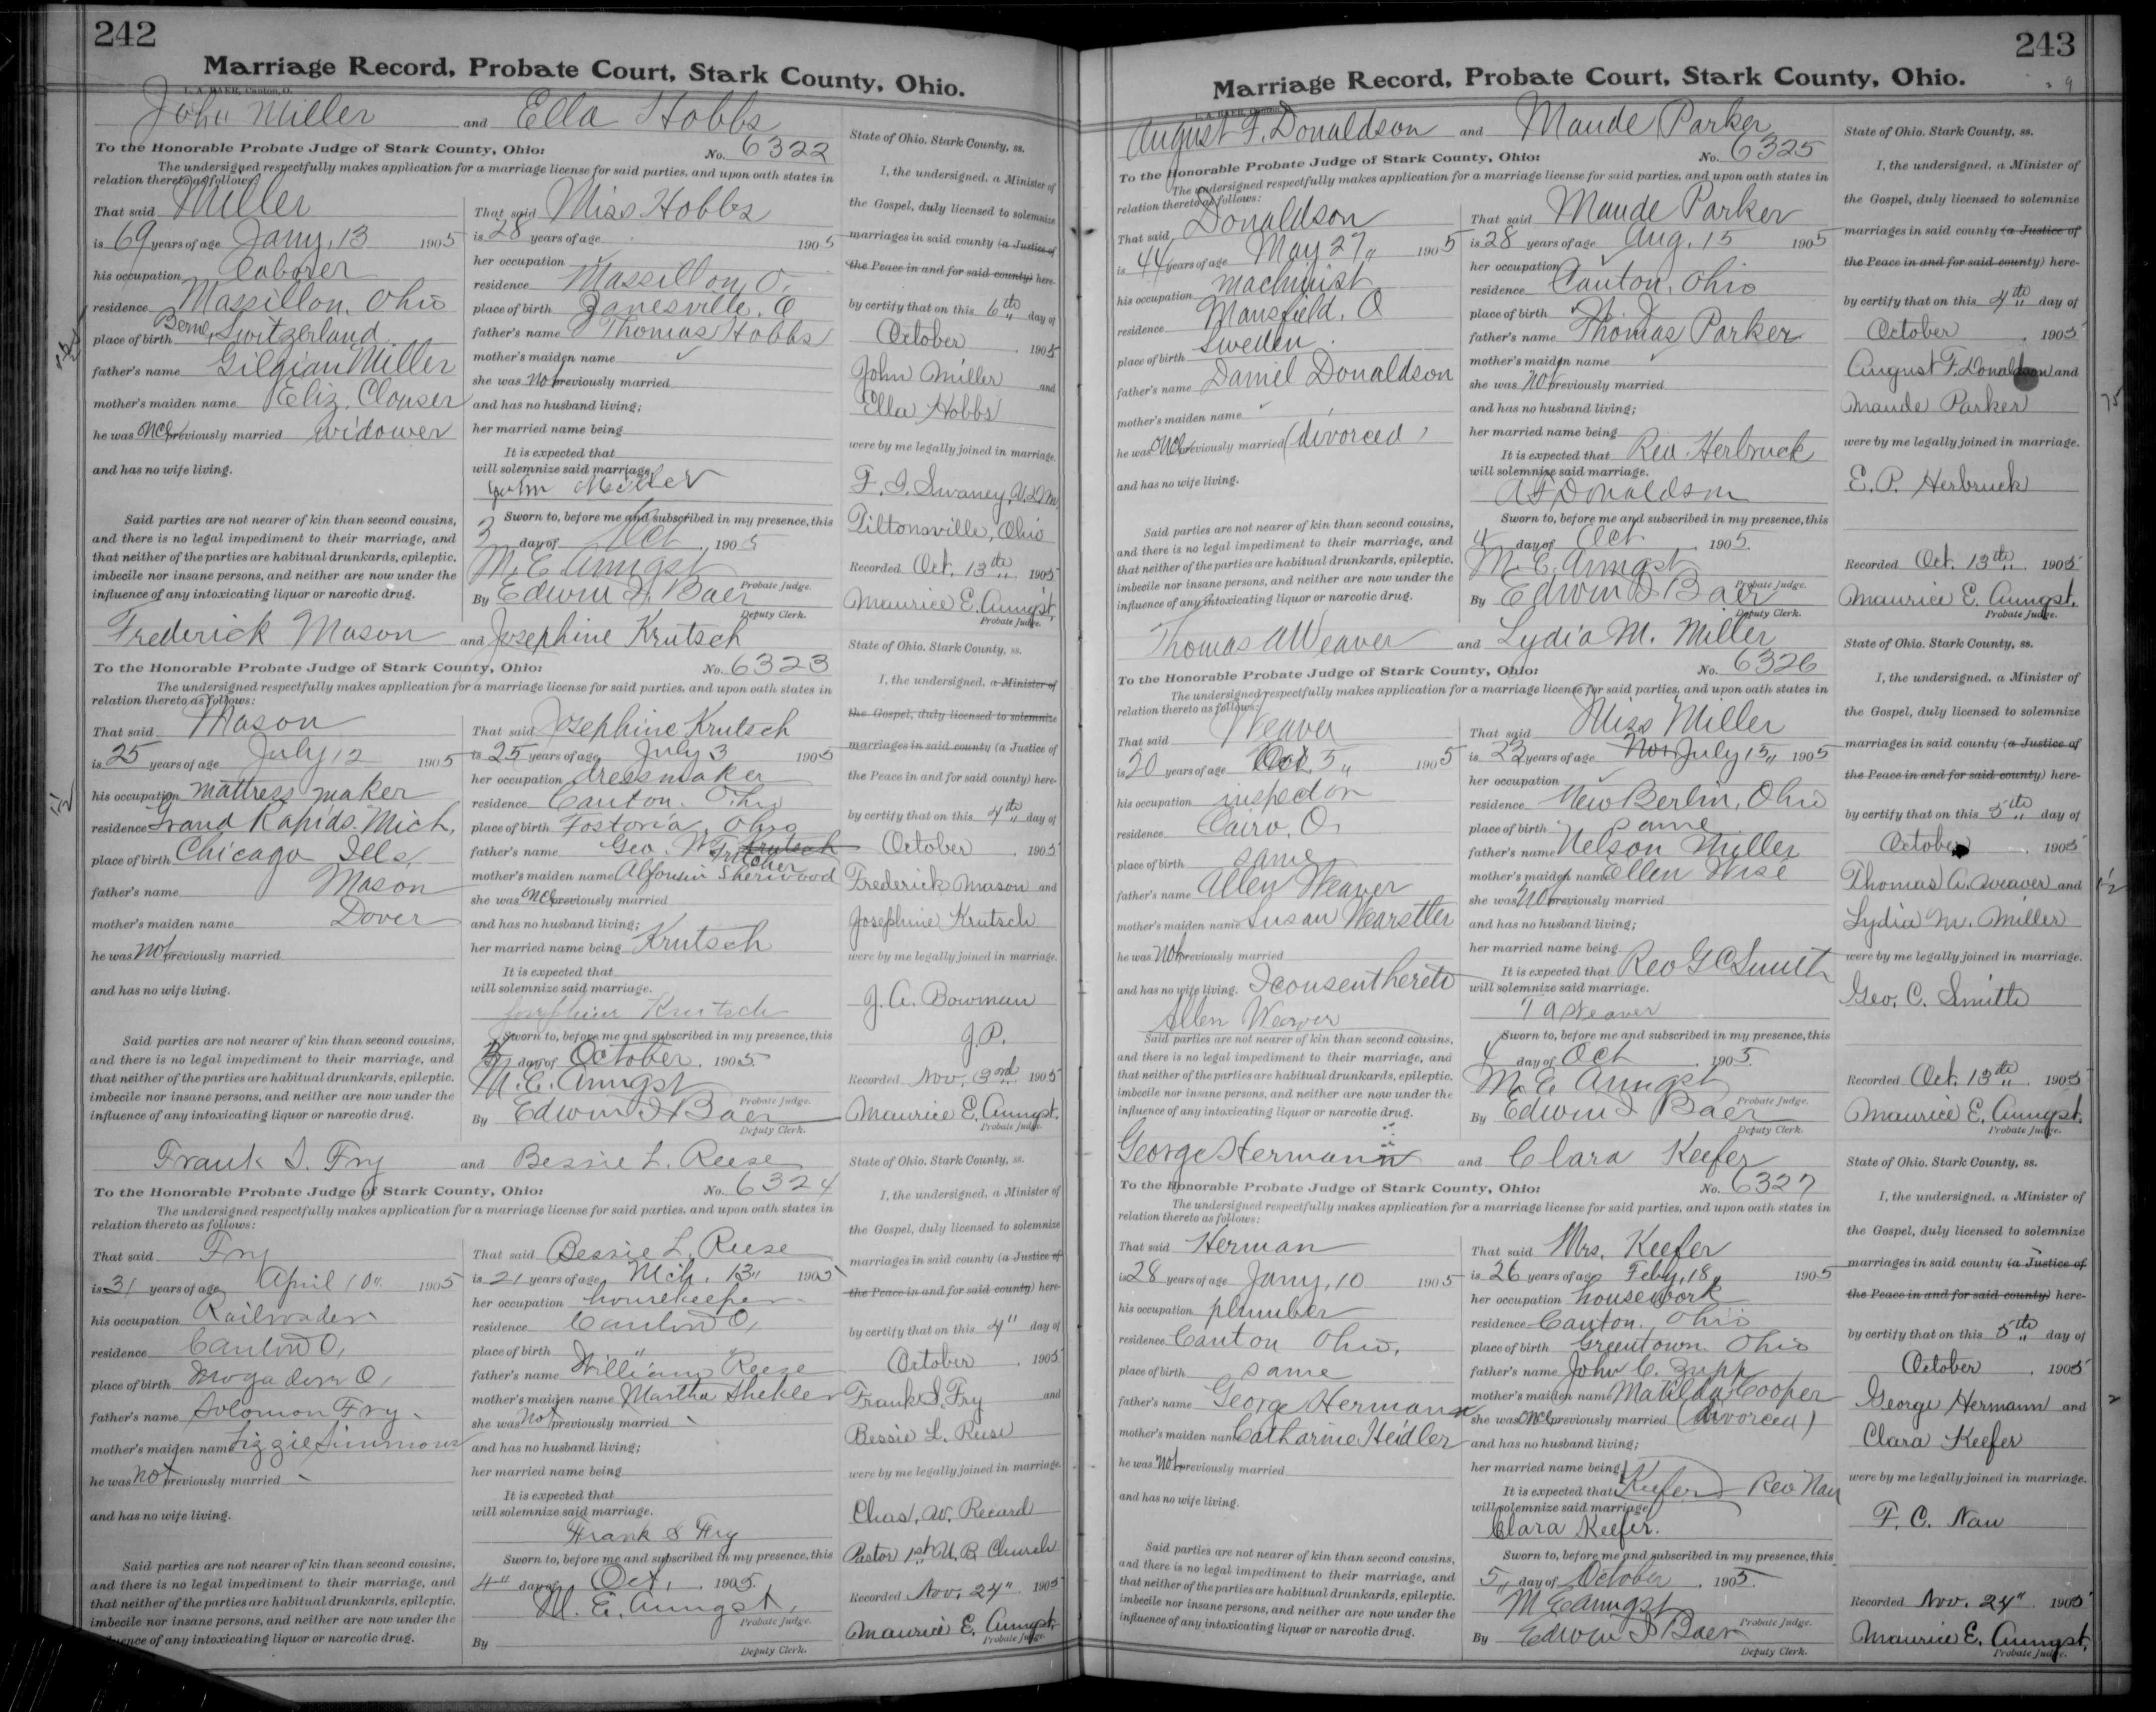 242
Marriage Record, Probate Court, Stark County, Ohio.
John Miller and Ella Hobbs
To the Honorable Probate Judge of Stark County, Ohio: No. 6322
The undersigned respectfully makes application for a marriage license for said parties, and upon oath states in
relation thereto as follows:
That said Miller
is 69 years of age Jany. 13 1905
his occupation Laborer
residence Massillon, Ohio
place of birth Berne, Switzerland
father's name Gilgian Miller
mother's maiden name Eliz. Clouser
he was once previously married widower
and has no wife living.
Said parties are not nearer of kin than second cousins,
and there is no legal impediment to their marriage, and
that neither of the parties are habitual drunkards, epileptic,
imbecile nor insane persons, and neither are now under the
influence of any intoxicating liquor or narcotic drug.
That said Miss Hobbs
is 28 years of age 1905
her occupation
residence Massillon, O.
place of birth Zanesville, O
father's name Thomas Hobbs
mother's maiden name
she was not previously married
and has no husband living;
her married name being
It is expected that
will solemnize said marriage.
John Miller
Sworn to, before me and subscribed in my presence, this
3 day of Oct 1905
M. E. Aungst Probate Judge.
By Edwin J. Baer Deputy Clerk.
State of Ohio. Stark County, ss.
I, the undersigned, a Minister of
the Gospel, duly licensed to solemnize
marriages in said county (a Justice of
the Peace in and for said county) here-
by certify that on this 6th day of
October 1905
John Miller and
Ella Hobbs
were by me legally joined in marriage.
F. I. Swaney, V.D.M.
Tiltonsville, Ohio
Recorded Oct. 13th 1905
Maurice E. Aungst,
Probate Judge.
Frederick Mason and Josephine Krutsch
To the Honorable Probate Judge of Stark County, Ohio: No. 6323
The undersigned respectfully makes application for a marriage license for said parties, and upon oath states in
relation thereto as follows:
That said Mason
is 25 years of age July 12 1905
his occupation mattress maker
residence Grand Rapids. Mich,
place of birth Chicago Ills,
father's name Mason
mother's maiden name Dover
he was not previously married
and has no wife living.
Said parties are not nearer of kin than second cousins,
and there is no legal impediment to their marriage, and
that neither of the parties are habitual drunkards, epileptic,
imbecile nor insane persons, and neither are now under the
influence of any intoxicating liquor or narcotic drug.
That said Josephine Krutsch
is 25 years of age July 3 1905
her occupation dressmaker
residence Canton. Ohio
place of birth Fostoria, Ohio
father's name Geo. W. Krutsch Fritcher
mother's maiden name Sherwood
she was once previously married
and has no husband living;
her married name being Krutsch
It is expected that
will solemnize said marriage.
Josephine Krutsch
Sworn to, before me and subscribed in my presence, this
day of October 1905
M. E. Aungst Probate Judge.
By Edwin J. Baer Deputy Clerk.
State of Ohio. Stark County, ss.
I, the undersigned, a Minister of
the Gospel, duly licensed to solemnize
marriages in said county (a Justice of
the Peace in and for said county) here-
by certify that on this 4th day of
October 1905
Frederick Mason and
Josephine Krutsch
were by me legally joined in marriage.
J. A. Bowman
J.P.
Recorded Nov. 3rd 1905
Maurice E. Aungst.
Probate Judge.
Frank S. Fry and Bessie L. Reese
To the Honorable Probate Judge of Stark County, Ohio: No. 6324
The undersigned respectfully makes application for a marriage license for said parties, and upon oath states in
relation thereto as follows:
That said Fry
is 31 years of age April 10" 1905
his occupation Railroader
residence Canton O,
place of birth Mogadore O,
father's name Solomon Fry
mother's maiden name Lizzie Simmons
he was not previously married
and has no wife living.
Said parties are not nearer of kin than second cousins,
and there is no legal impediment to their marriage, and
that neither of the parties are habitual drunkards, epileptic,
imbecile nor insane persons, and neither are now under the
influence of any intoxicating liquor or narcotic drug.
That said Bessie L. Reese
is 21 years of age Mch. 13" 1905
her occupation housekeeper
residence Canton O,
place of birth " "
father's name William Reese
mother's maiden name Martha Shekler
she was not previously married
and has no husband living;
her married name being
It is expected that
will solemnize said marriage.
Frank S Fry
Sworn to, before me and subscribed in my presence, this
4" day of Oct, 1905.
M. E. Aungst, Probate Judge.
By Deputy Clerk.
State of Ohio. Stark County, ss.
I, the undersigned, a Minister of
the Gospel, duly licensed to solemnize
marriages in said county (a Justice of
the Peace in and for said county) here-
by certify that on this 4" day of
October 1905
Frank S. Fry and
Bessie L. Reese
were by me legally joined in marriage.
Chas. W. Recard
Pastor 1st U.B. Church
Recorded Nov. 24" 1905
Maurice E. Aungst,
Probate Judge.
243
Marriage Record, Probate Court, Stark County, Ohio.
August F. Donaldson and Maude Parker
To the Honorable Probate Judge of Stark County, Ohio: No. 6325
The undersigned respectfully makes application for a marriage license for said parties, and upon oath states in
relation thereto as follows:
That said Donaldson
is 44 years of age May 27" 1905
his occupation machinist
residence Mansfield. O
place of birth Sweden.
father's name Daniel Donaldson
mother's maiden name
he was once previously married (divorced)
and has no wife living.
Said parties are not nearer of kin than second cousins,
and there is no legal impediment to their marriage, and
that neither of the parties are habitual drunkards, epileptic,
imbecile nor insane persons, and neither are now under the
influence of any intoxicating liquor or narcotic drug.
That said Maude Parker
is 28 years of age Aug. 15 1905
her occupation
residence Canton, Ohio
place of birth
father's name Thomas Parker
mother's maiden name
she was not previously married
and has no husband living;
her married name being
It is expected that Rev. Herbruck
will solemnize said marriage.
A F Donaldson
Sworn to, before me and subscribed in my presence, this
4 day of Oct 1905.
M. E. Aungst Probate Judge.
By Edwin J Baer Deputy Clerk.
State of Ohio. Stark County, ss.
I, the undersigned, a Minister of
the Gospel, duly licensed to solemnize
marriages in said county (a Justice of
the Peace in and for said county) here-
by certify that on this 4th day of
October 1905
August F. Donaldson and
Maude Parker
were by me legally joined in marriage.
E. P. Herbruck
Recorded Oct. 13th 1905
Maurice E. Aungst.
Probate Judge.
Thomas A Weaver and Lydia M. Miller
To the Honorable Probate Judge of Stark County, Ohio: No. 6326
The undersigned respectfully makes application for a marriage license for said parties, and upon oath states in
relation thereto as follows:
That said Weaver
is 20 years of age Oct. 5" 1905
his occupation inspector
residence Cairo, O.
place of birth same
father's name Allen Weaver
mother's maiden name Susan Wearstler
he was not previously married
and has no wife living. I consent hereto
Allen Weaver
Said parties are not nearer of kin than second cousins,
and there is no legal impediment to their marriage, and
that neither of the parties are habitual drunkards, epileptic,
imbecile nor insane persons, and neither are now under the
influence of any intoxicating liquor or narcotic drug.
That said Miss Miller
is 22 years of age July 13" 1905
her occupation
residence New Berlin, Ohio
place of birth same
father's name Nelson Miller
mother's maiden name Ellen Wise
she was not previously married
and has no husband living;
her married name being
It is expected that Rev G C Smith
will solemnize said marriage.
T A Weaver
Sworn to, before me and subscribed in my presence, this
4 day of Oct 1905.
M. E. Aungst Probate Judge.
By Edwin J Baer Deputy Clerk.
State of Ohio. Stark County, ss.
I, the undersigned, a Minister of
the Gospel, duly licensed to solemnize
marriages in said county (a Justice of
the Peace in and for said county) here-
by certify that on this 5th day of
October 1905
Thomas A. Weaver and
Lydia M. Miller
were by me legally joined in marriage.
Geo. C. Smith
Recorded Oct. 13th 1905
Maurice E. Aungst.
Probate Judge.
George Hermann and Clara Keefer
To the Honorable Probate Judge of Stark County, Ohio: No. 6327
The undersigned respectfully makes application for a marriage license for said parties, and upon oath states in
relation thereto as follows:
That said Herman
is 28 years of age Jany. 10 1905
his occupation plumber
residence Canton Ohio.
place of birth same
father's name George Hermann
mother's maiden name Catharine Heidler
he was not previously married
and has no wife living.
Said parties are not nearer of kin than second cousins,
and there is no legal impediment to their marriage, and
that neither of the parties are habitual drunkards, epileptic,
imbecile nor insane persons, and neither are now under the
influence of any intoxicating liquor or narcotic drug.
That said Mrs. Keefer
is 26 years of age Feby. 18" 1905
her occupation housework
residence Canton. Ohio
place of birth Greentown Ohio
father's name John C. Zupp
mother's maiden name Matilda Cooper
she was once previously married (divorced)
and has no husband living;
her married name being Keefer
It is expected that Rev Nau
will solemnize said marriage.
Clara Keefer.
Sworn to, before me and subscribed in my presence, this
5" day of October 1905.
M E Aungst Probate Judge.
By Edwin J Baer Deputy Clerk.
State of Ohio. Stark County, ss.
I, the undersigned, a Minister of
the Gospel, duly licensed to solemnize
marriages in said county (a Justice of
the Peace in and for said county) here-
by certify that on this 5th day of
October 1905
George Hermann and
Clara Keefer
were by me legally joined in marriage.
F. C. Nau
Recorded Nov. 24" 1905
Maurice E. Aungst.
Probate Judge.